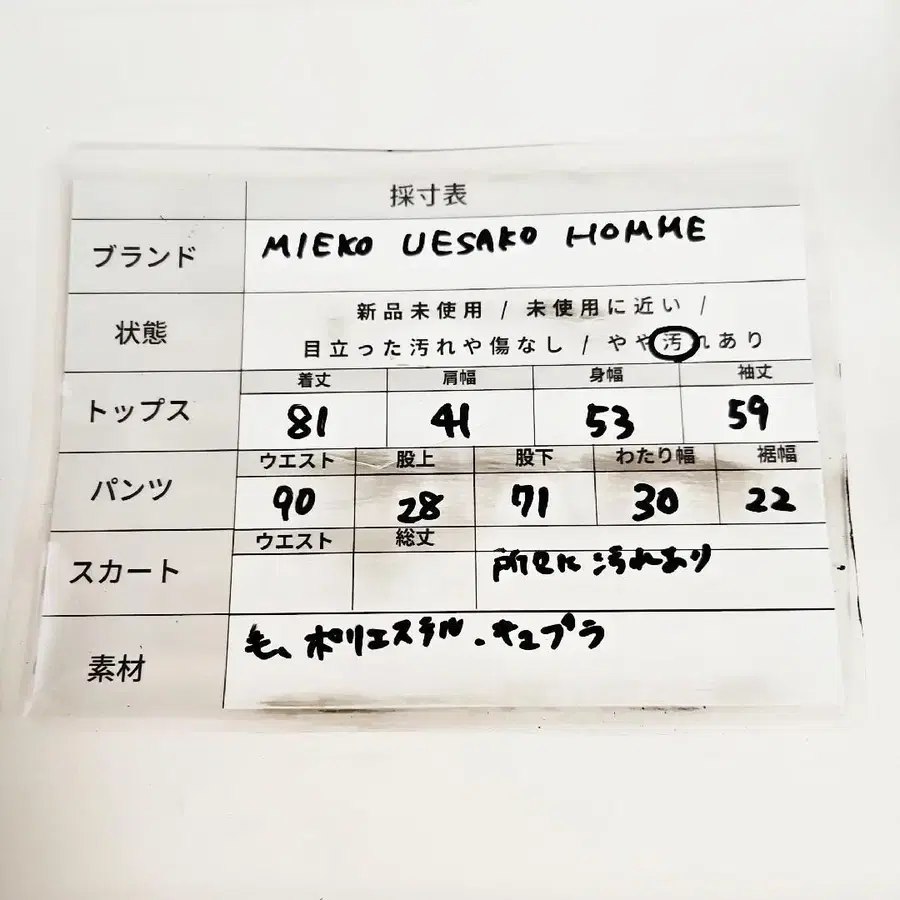 採寸表
ブランド MIEKO UESAKO HOMME
状態 新品未使用 / 未使用に近い /
目立った汚れや傷なし / やや汚れあり
着丈 肩幅 身幅 袖丈
トップス 81 41 53 59
ウエスト 股上 股下 わたり幅 裾幅
パンツ 90 28 71 30 22
ウエスト 総丈
スカート 所々に汚れあり
素材 毛、ポリエステル.キュプラ